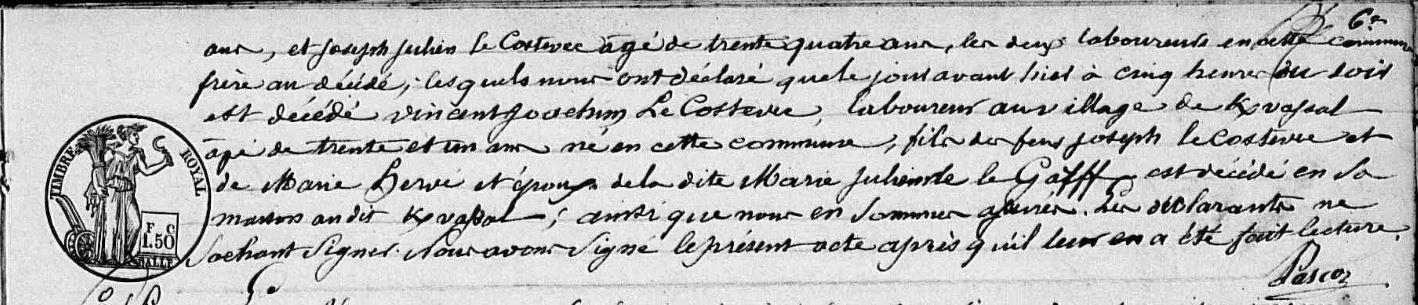 6e
ans, et joseph julien le Costevec âgé de trente quatre ans, les deux laboureurs en cette commune
frère au décédé; lesquels nous ont déclaré que le jour avant hier à cinq heures du soir
est décédé vincent joachim Le Costevec, laboureur au village de Kvassal
âgé de trente et un ans né en cette commune, fils des feus joseph le Costevec et
de Marie Hervé et époux de la dite Marie julienne le Gafff est décédé en sa
maison audit Kvassal; ainsi que nous en sommes assurés. Les déclarants ne
sachant signer. Nous avons signé le présent acte après qu'il leur en a été fait lecture.
TIMBRE ROYAL
F C
1.50
Pasco